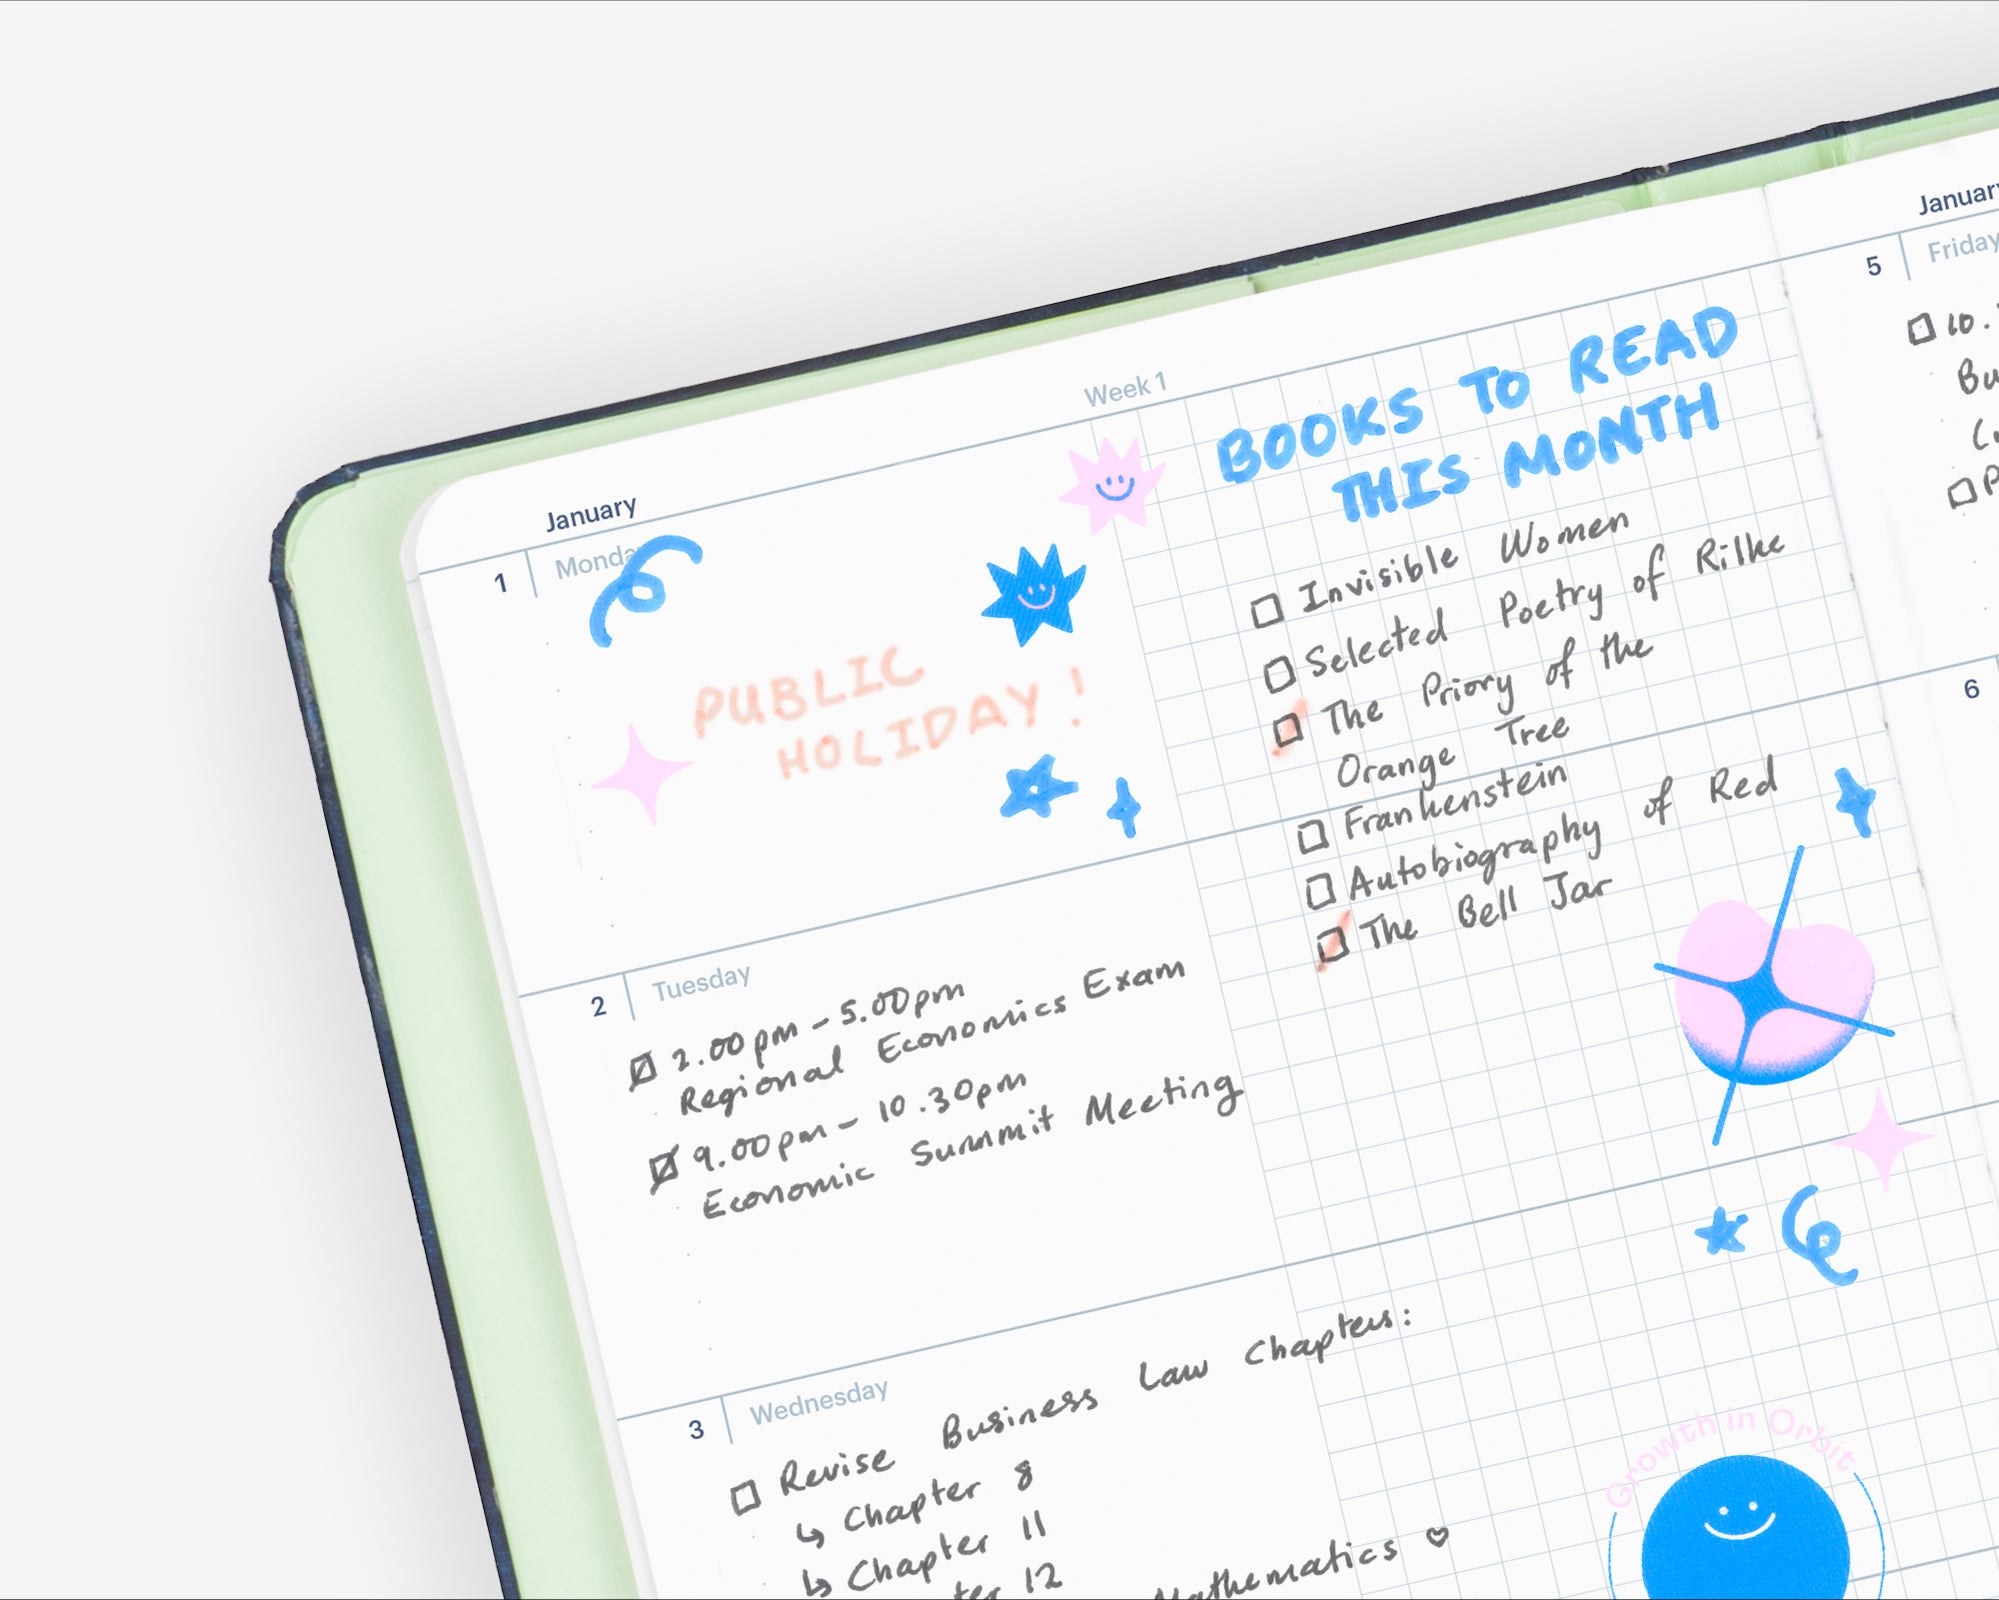 January
Week 1
1
Monday
PUBLIC
HOLIDAY!
BOOKS TO READ
THIS MONTH
Invisible Women
Selected Poetry of Rilke
The Priory of the
Orange Tree
Frankenstein
Autobiography of Red
The Bell Jar
2
Tuesday
2.00pm – 5.00pm
Regional Economics Exam
9.00pm – 10.30pm
Economic Summit Meeting
3
Wednesday
Revise Business Law Chapters:
↳ Chapter 8
↳ Chapter 11
12
Mathematics ♡
Growth in Orbit
January
5
Friday
10.
6